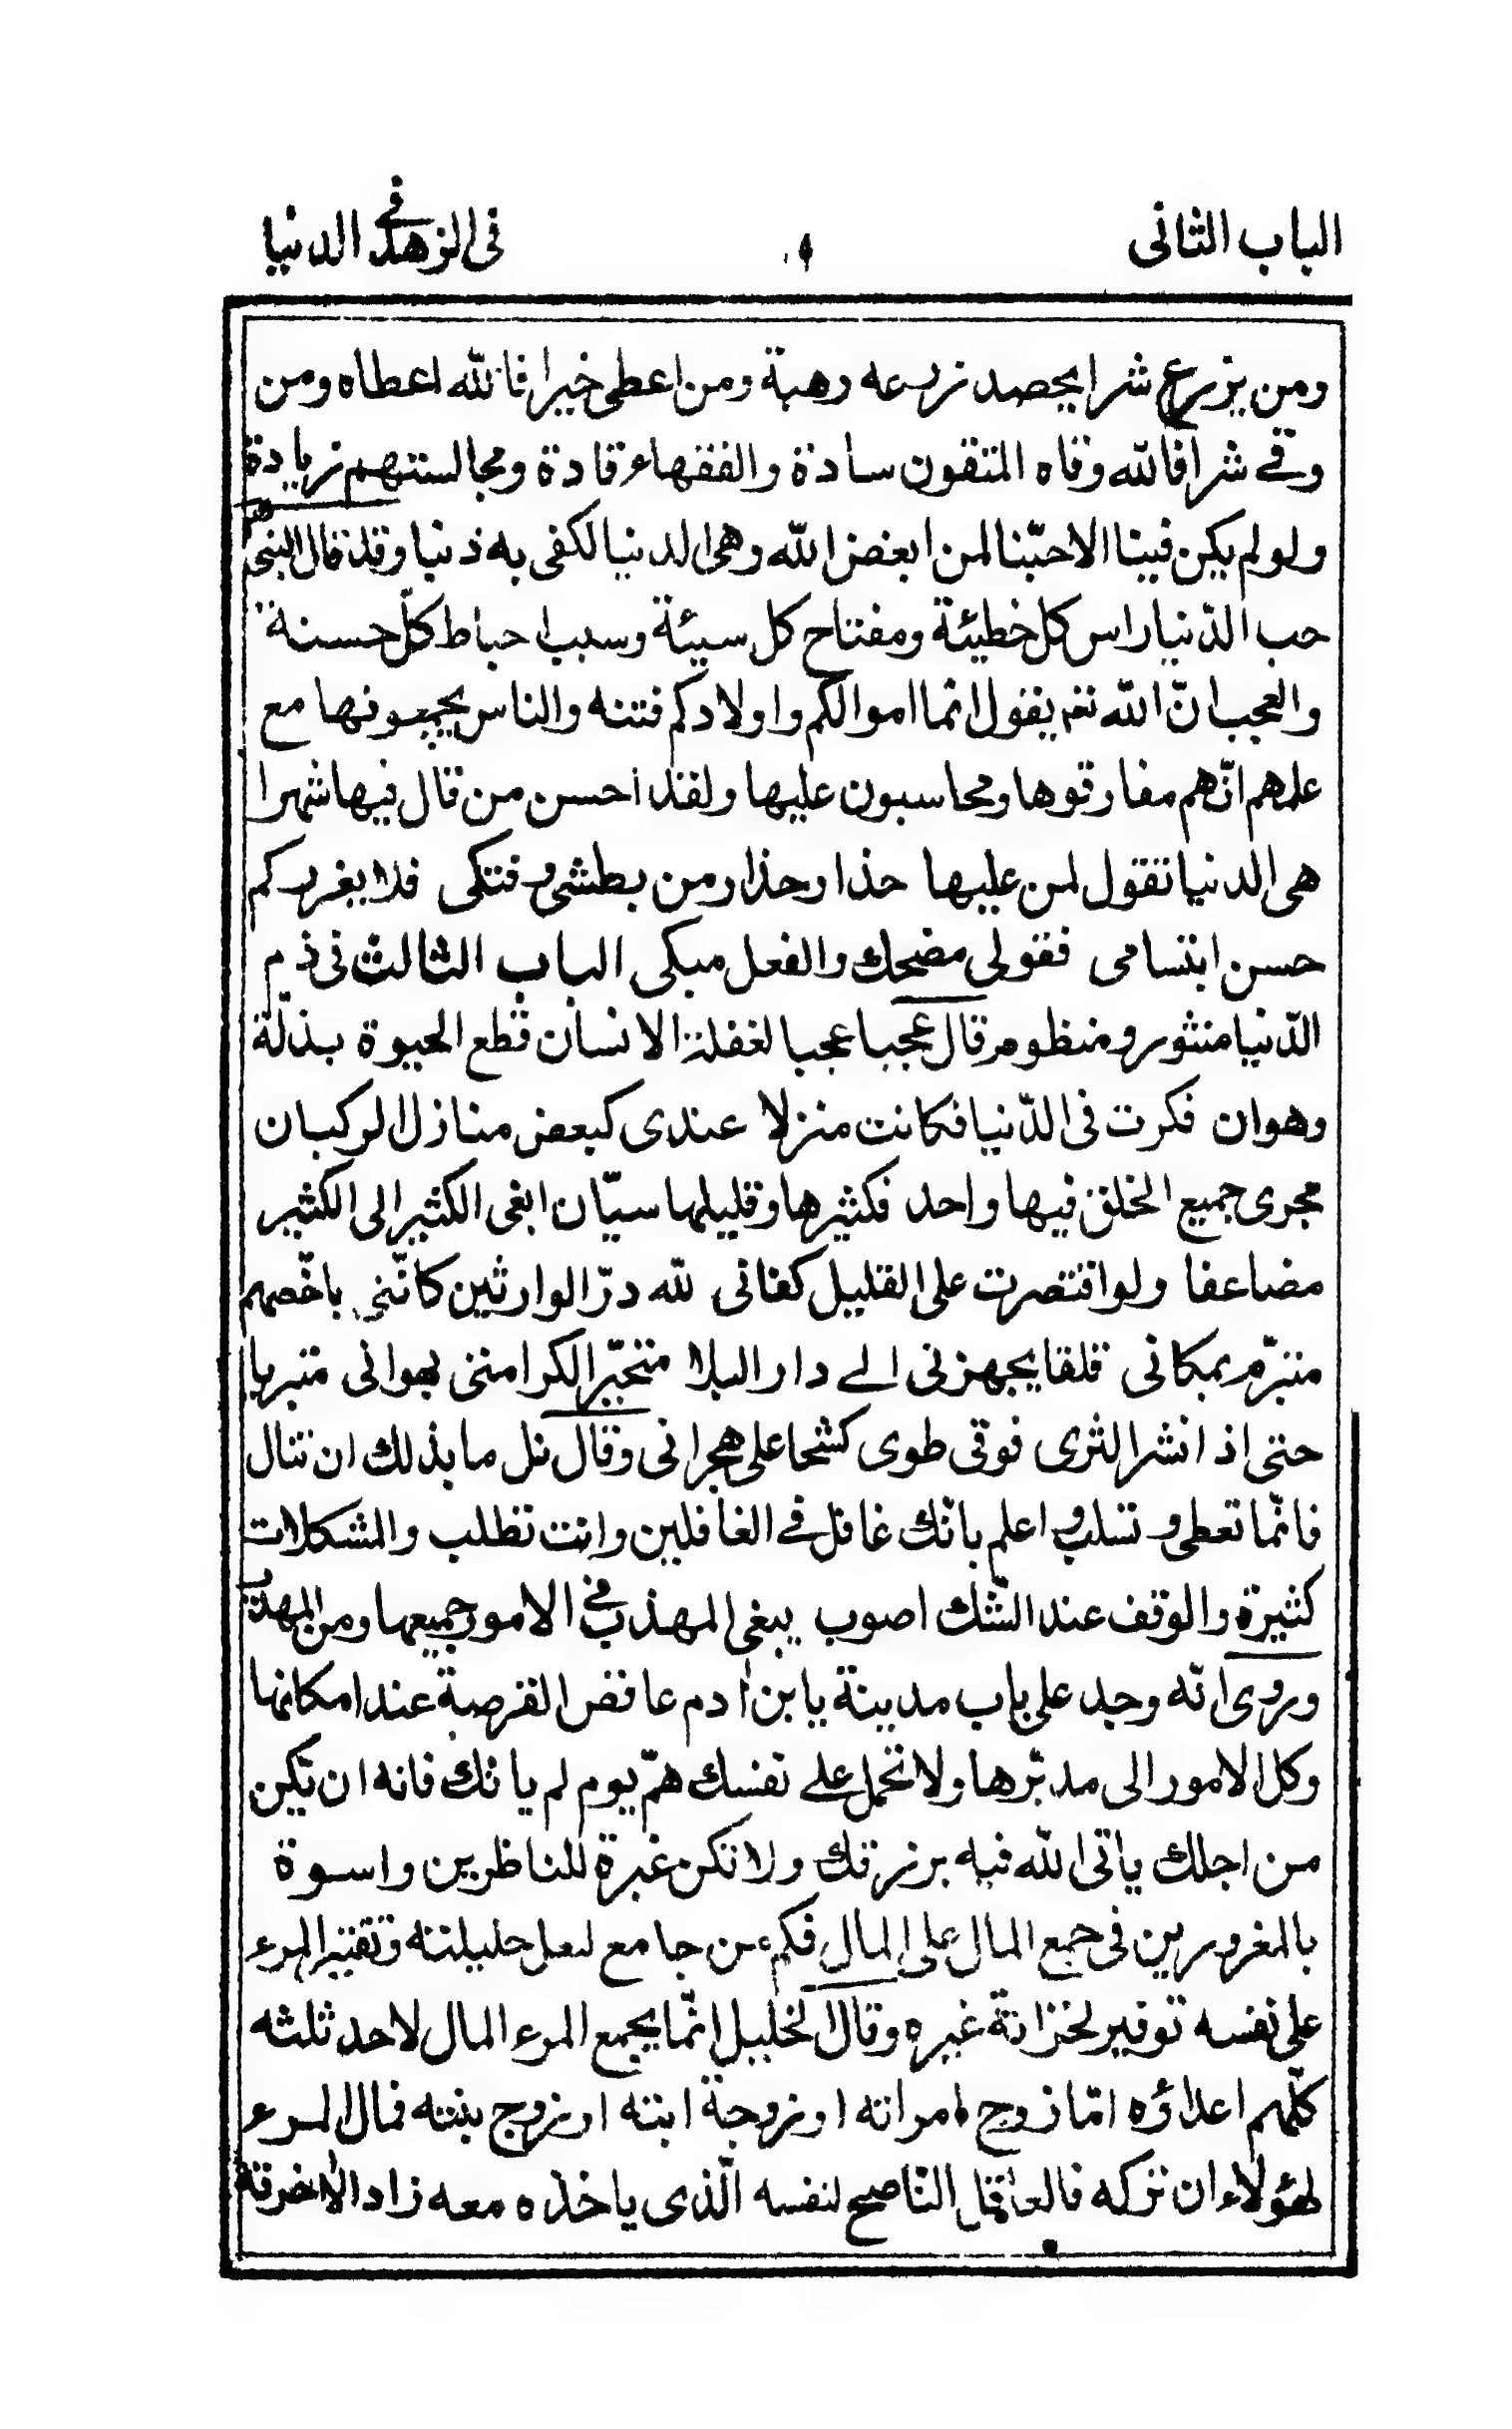 الباب الثانى ٩ فى الزهد فى الدنيا
ومن يزرع شرا يحصد زرعه رهبة ومن اعطى خيرا فالله اعطاه ومن
وقى شرا فالله وقاه المتقون سادة والفقهاء قادة ومجالستهم زيادة
ولو لم يكن فينا الا حبّنا لمن ابغض الله وهى الدنيا لكفى به ذنبا وقد قال النبى ص
حب الدّنيا راس كل خطيئة ومفتاح كل سيئة وسبب احباط كلّ حسنة
والعجب انّ الله تعم يقول انّما اموالكم واولادكم فتنه والناس يجمعونها مع
علمهم انّهم مفارقوها ومحاسبون عليها ولقد احسن من قال فيها شعرا
هى الدنيا تقول لمن عليها حذار حذار من بطشى وفتكى فلا يغرركم
حسن ابتسامى فقولى مضحك والفعل مبكى الباب الثالث فى ذم
الدّنيا منثور ومنظوم قال عجبا عجبا لغفلة الانسان قطع الحيوة بذلّة
وهوان فكرت فى الدّنيا فكانت منزلا عندى كبعض منازل الركبان
مجرى جميع الخلق فيها واحد فكثيرها وقليلها سيّان ابغى الكثير الى الكثير
مضاعفا ولو اقتصرت على القليل كفانى لله درّ الوارثين كانّنى باخّصهم
متبرّم بمكانى قلقا يجهزنى الى دار البلا متحيّرا لكرامتى بهوانى متبريا
حتى اذا نشر الثرى فوقى طوى كشحا على هجرانى وقال نل ما بذلك ان تنال
فانّما تعطى وتسلب واعلم بانّك غافل فى الغافلين وانت تطلب والمشكلات
كثيرة والوقف عند الشّك اصوب يبغى المهذب فى الامور جميعها ومن المهذب
وروى انّه وجد على باب مدينة يابن ادم غافض الفرصة عند امكانها
وكل الامور الى مدبّرها ولا تحمل على نفسك همّ يوم لم ياتك فانه ان تكن
من اجلك ياتى الله فيه برزقك ولا تكن عبرة للناظرين واسوة
بالمغرورين فى جمع المال على المال فكم من جامع لبعل حليلته وتقتير المرء
على نفسه توفير لخزانة غيره وقال الخليل انّما يجمع المرء المال لاحد ثلثه
كلّهم اعداؤه امّا زوج امراته او زوجة ابنته او زوج بنته فمال المرء
لهؤلاء ان تركه فالعاقل النّاصح لنفسه الّذى ياخذه معه زاد الاخرته